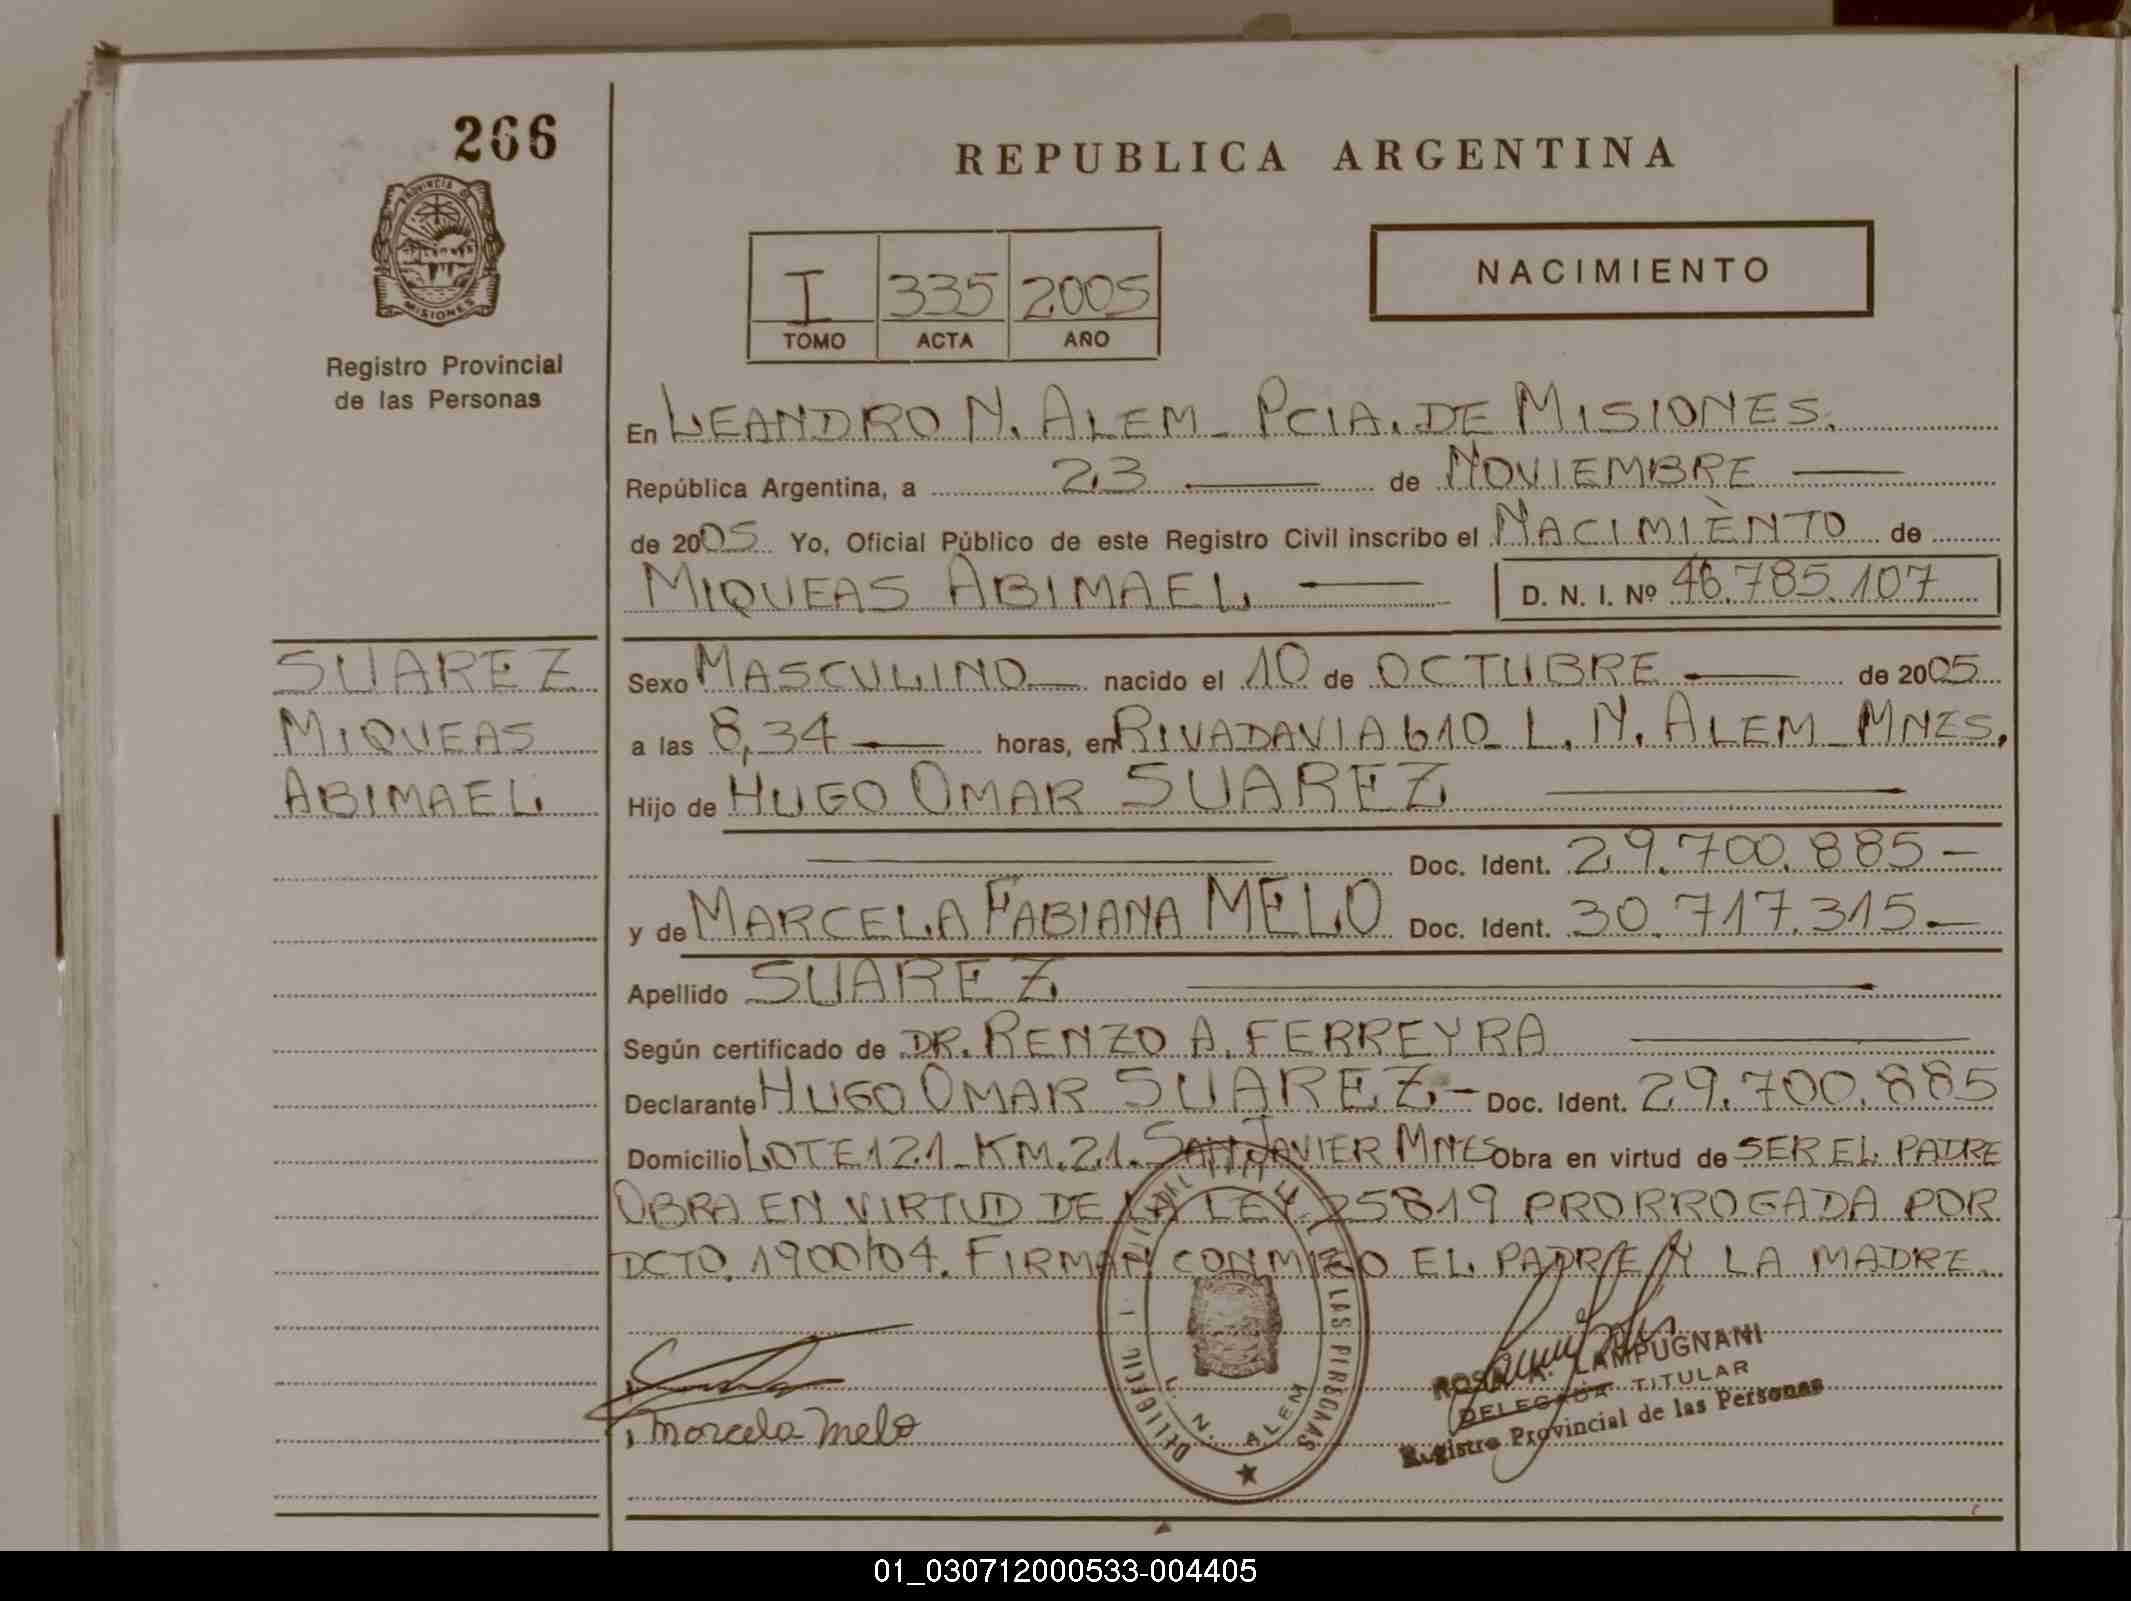 266
PROVINCIA DE
MISIONES
Registro Provincial
de las Personas
REPUBLICA ARGENTINA
I 335 2005
TOMO ACTA AÑO
NACIMIENTO
En LEANDRO N. ALEM - PCIA. DE MISIONES.
República Argentina, a 23 de NOVIEMBRE
de 2005 Yo, Oficial Público de este Registro Civil inscribo el NACIMIÈNTO de
MIQUEAS ABIMAEL D. N. I. Nº 46.785.107
SUAREZ
MIQUEAS
ABIMAEL
Sexo MASCULINO nacido el 10 de OCTUBRE de 2005
a las 8,34 horas, en RIVADAVIA 610 - L. N. ALEM - MNES.
Hijo de HUGO OMAR SUAREZ
Doc. Ident. 29.700.885 -
y de MARCELA FABIANA MELO Doc. Ident. 30.717.315 -
Apellido SUAREZ
Según certificado de DR. RENZO A. FERREYRA
Declarante HUGO OMAR SUAREZ - Doc. Ident. 29.700.885
Domicilio LOTE 121 - KM. 21. SAN JAVIER MNES Obra en virtud de SER EL PADRE
OBRA EN VIRTUD DE LA LEY 25819 PRORROGADA POR
DCTO. 1900/04. FIRMAN CONMIGO EL PADRE Y LA MADRE.
Marcela Melo
DE LAS PERSONAS
L. N. ALEM
ROSA A. LAMPUGNANI
DELEGADA TITULAR
Registro Provincial de las Personas
01_030712000533-004405